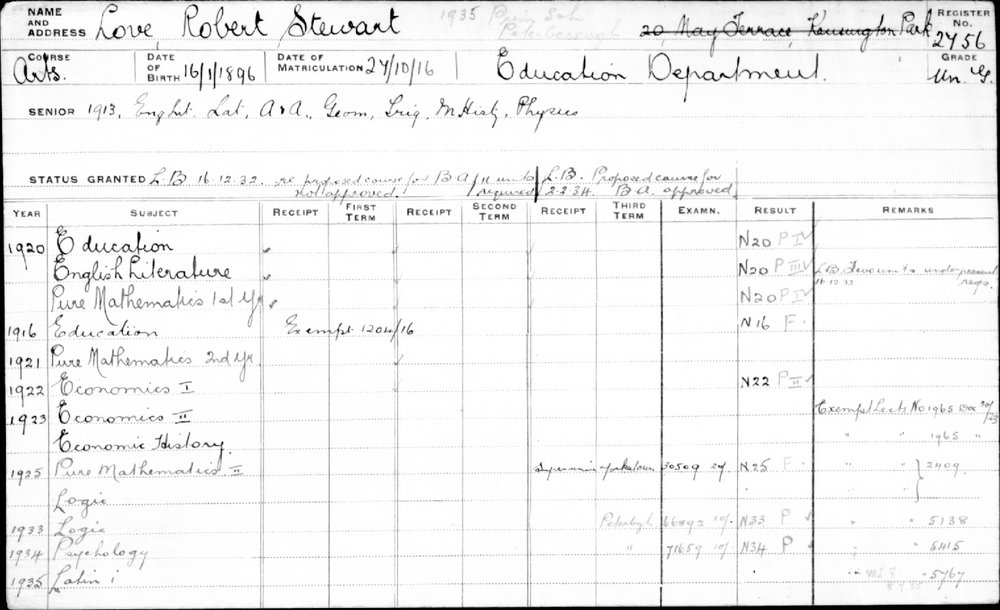 NAME AND ADDRESS Love, Robert Stewart 1935 Prim Sch Peterborough 20, May Terrace, Kensington Park REGISTER No. 2456
COURSE Arts. DATE OF BIRTH 16/1/1896 DATE OF MATRICULATION 27/10/16 Education Department. GRADE Un. G.
SENIOR 1913, Eng Lit. Lat, A & A., Geom, Trig, M Histy, Physics
STATUS GRANTED L.B 16.12.32. re proposed course for B A 11 units L.B. Proposed course for
not approved. required 2.2.34. B A. approved
YEAR SUBJECT RECEIPT FIRST TERM RECEIPT SECOND TERM RECEIPT THIRD TERM EXAMN. RESULT REMARKS
1920 Education N20 P I
English Literature N20 P III L.B. Two units under present regs. 16.12.32
Pure Mathematics 1st Yr N20 P I
1916 Education Exempt 1204/16 N16 F.
1921 Pure Mathematics 2nd Yr.
1922 Economics I N22 P II
1923 Economics II Exempt Lects No 1965 Doc 20/23
Economic History. " " 1965 "
1925 Pure Mathematics II Supervision Yorketown 30509 N25 F. " " 2409.
Logic
1933 Logic Peterbgh 66892 10/- N33 P " " 5138
1934 Psychology " 71659 10/- N34 P " " 5415
1935 Latin i 5767